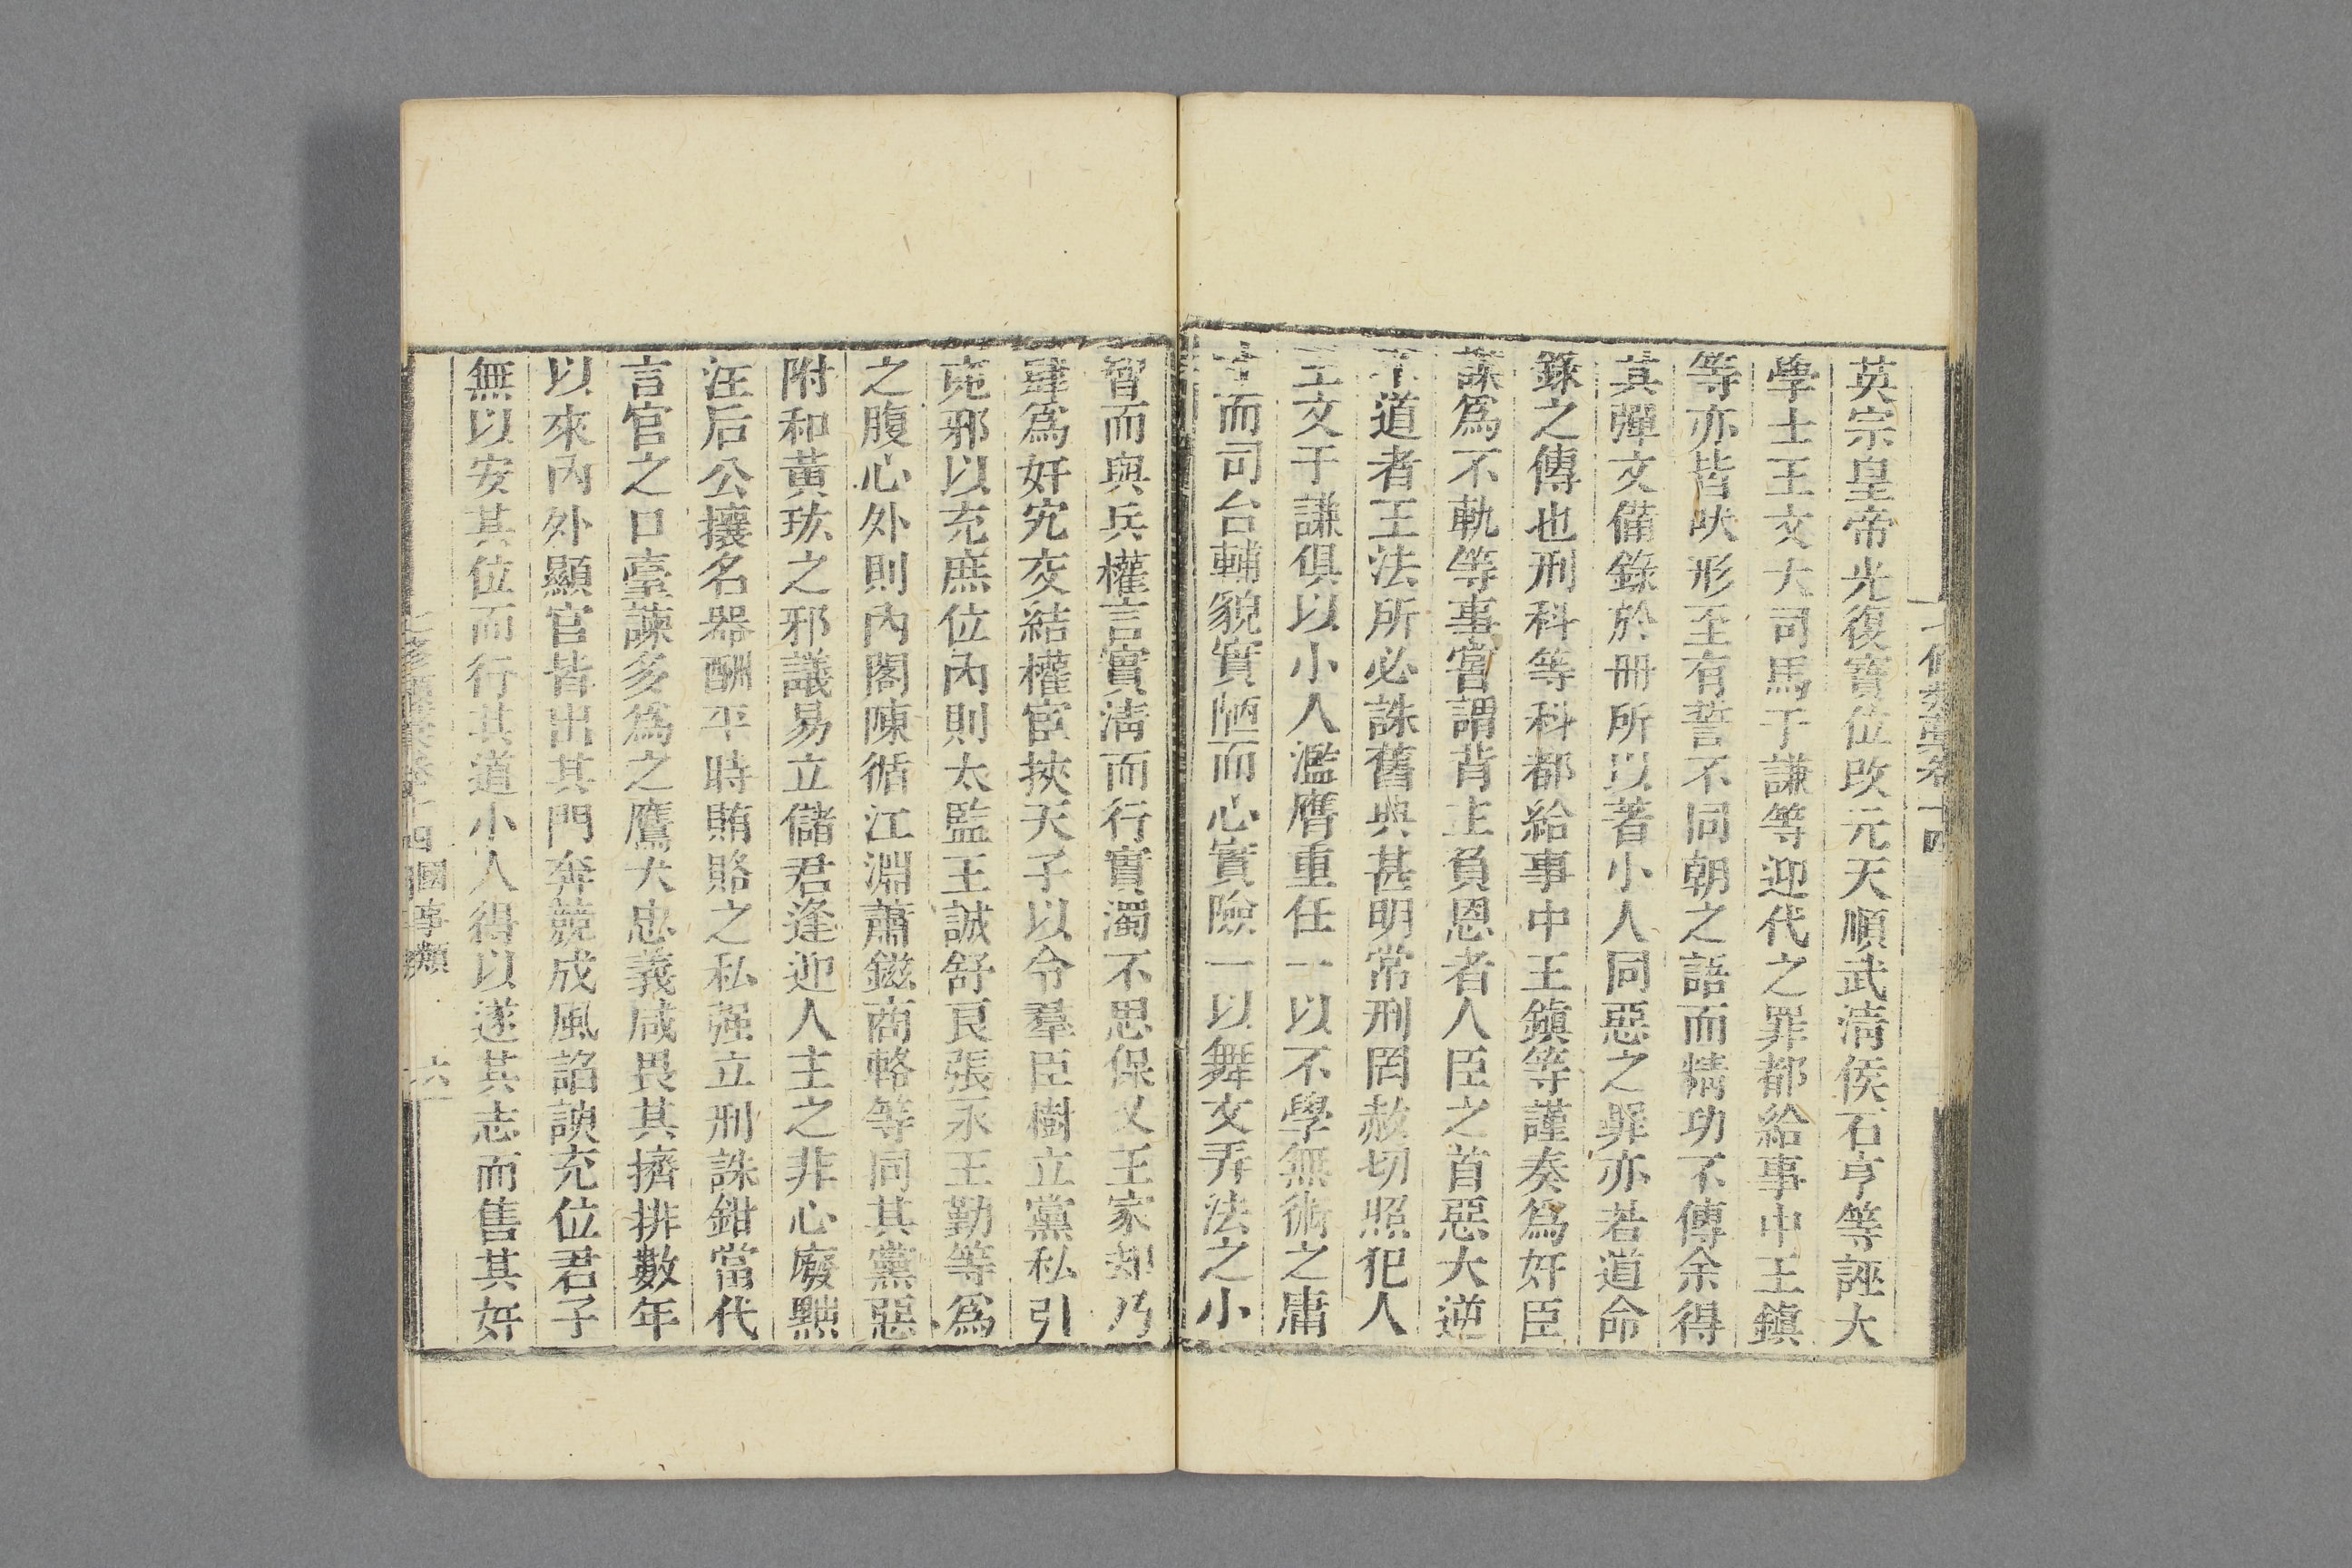 英宗皇帝光復寶位改元天順武淸侯石亨等誣大
學士王文大司馬于謙等迎代之罪都給事中王鎭
等亦皆吠形至有誓不同朝之語而精功不傳余得
其彈文備錄於冊所以著小人同惡之罪亦若道命
錄之傳也刑科等科都給事中王鎭等謹奏爲奸臣
謀爲不軌等事嘗謂背主負恩者人臣之首惡大逆
不道者王法所必誅舊典甚明常刑罔赦切照犯人
王文于謙俱以小人濫膺重任一以不學無術之庸
才而司台輔貌實陋而心實險一以舞文弄法之小
智而與兵權言實淸而行實濁不思保乂王家却乃
肆爲奸宄交結權宦挾天子以令羣臣樹立黨私引
兇邪以充庶位內則太監王誠舒良張永王勤等爲
之腹心外則內閣陳循江淵蕭鎡商輅等同其黨惡
附和黃㺬之邪議易立儲君逢迎人主之非心廢黜
汪后公攘名器酬平時賄賂之私强立刑誅鉗當代
言官之口臺諫多爲之鷹犬忠義咸畏其擠排數年
以來內外顯官皆出其門奔競成風諂諛充位君子
無以安其位而行其道小人得以遂其志而售其奸
七修類藁卷十四 國事類 六